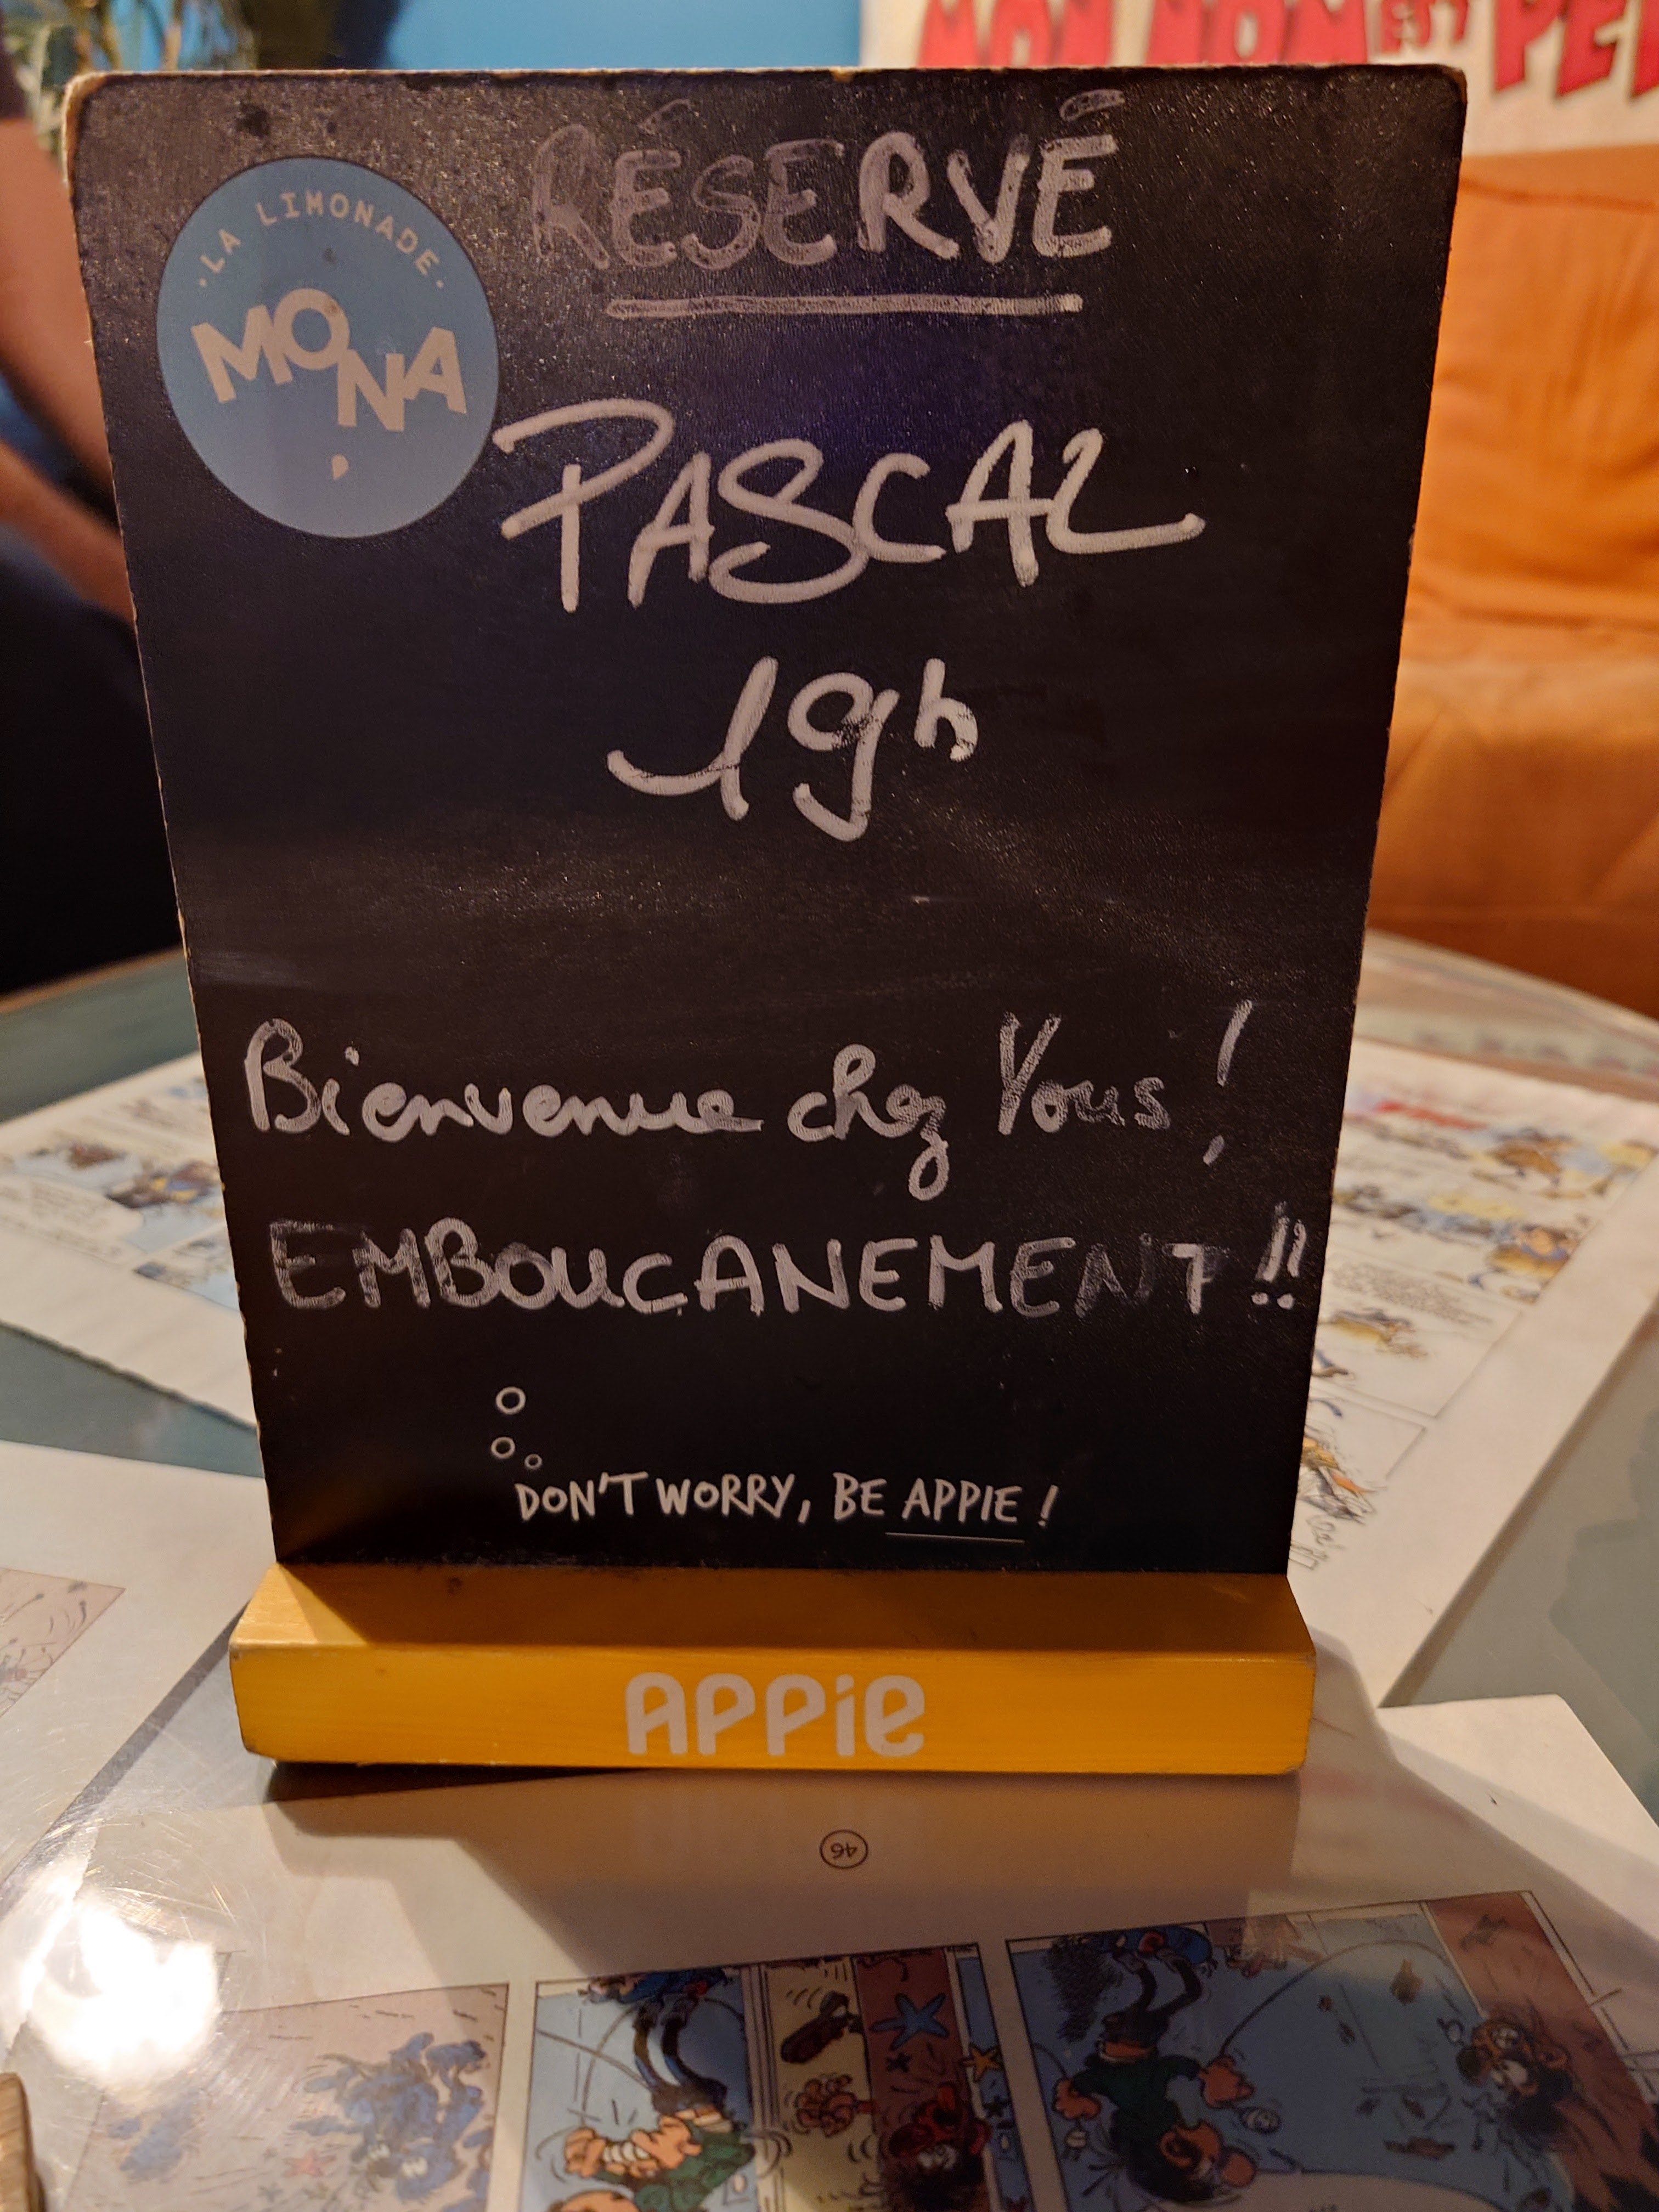 MON NOM EST PE
RÉSERVÉ
·LA LIMONADE·
MONA
PASCAL
19h
Bienvenue chez Vous!
EMBOUCANEMENT!!
DON'T WORRY, BE APPIE!
APPie
46